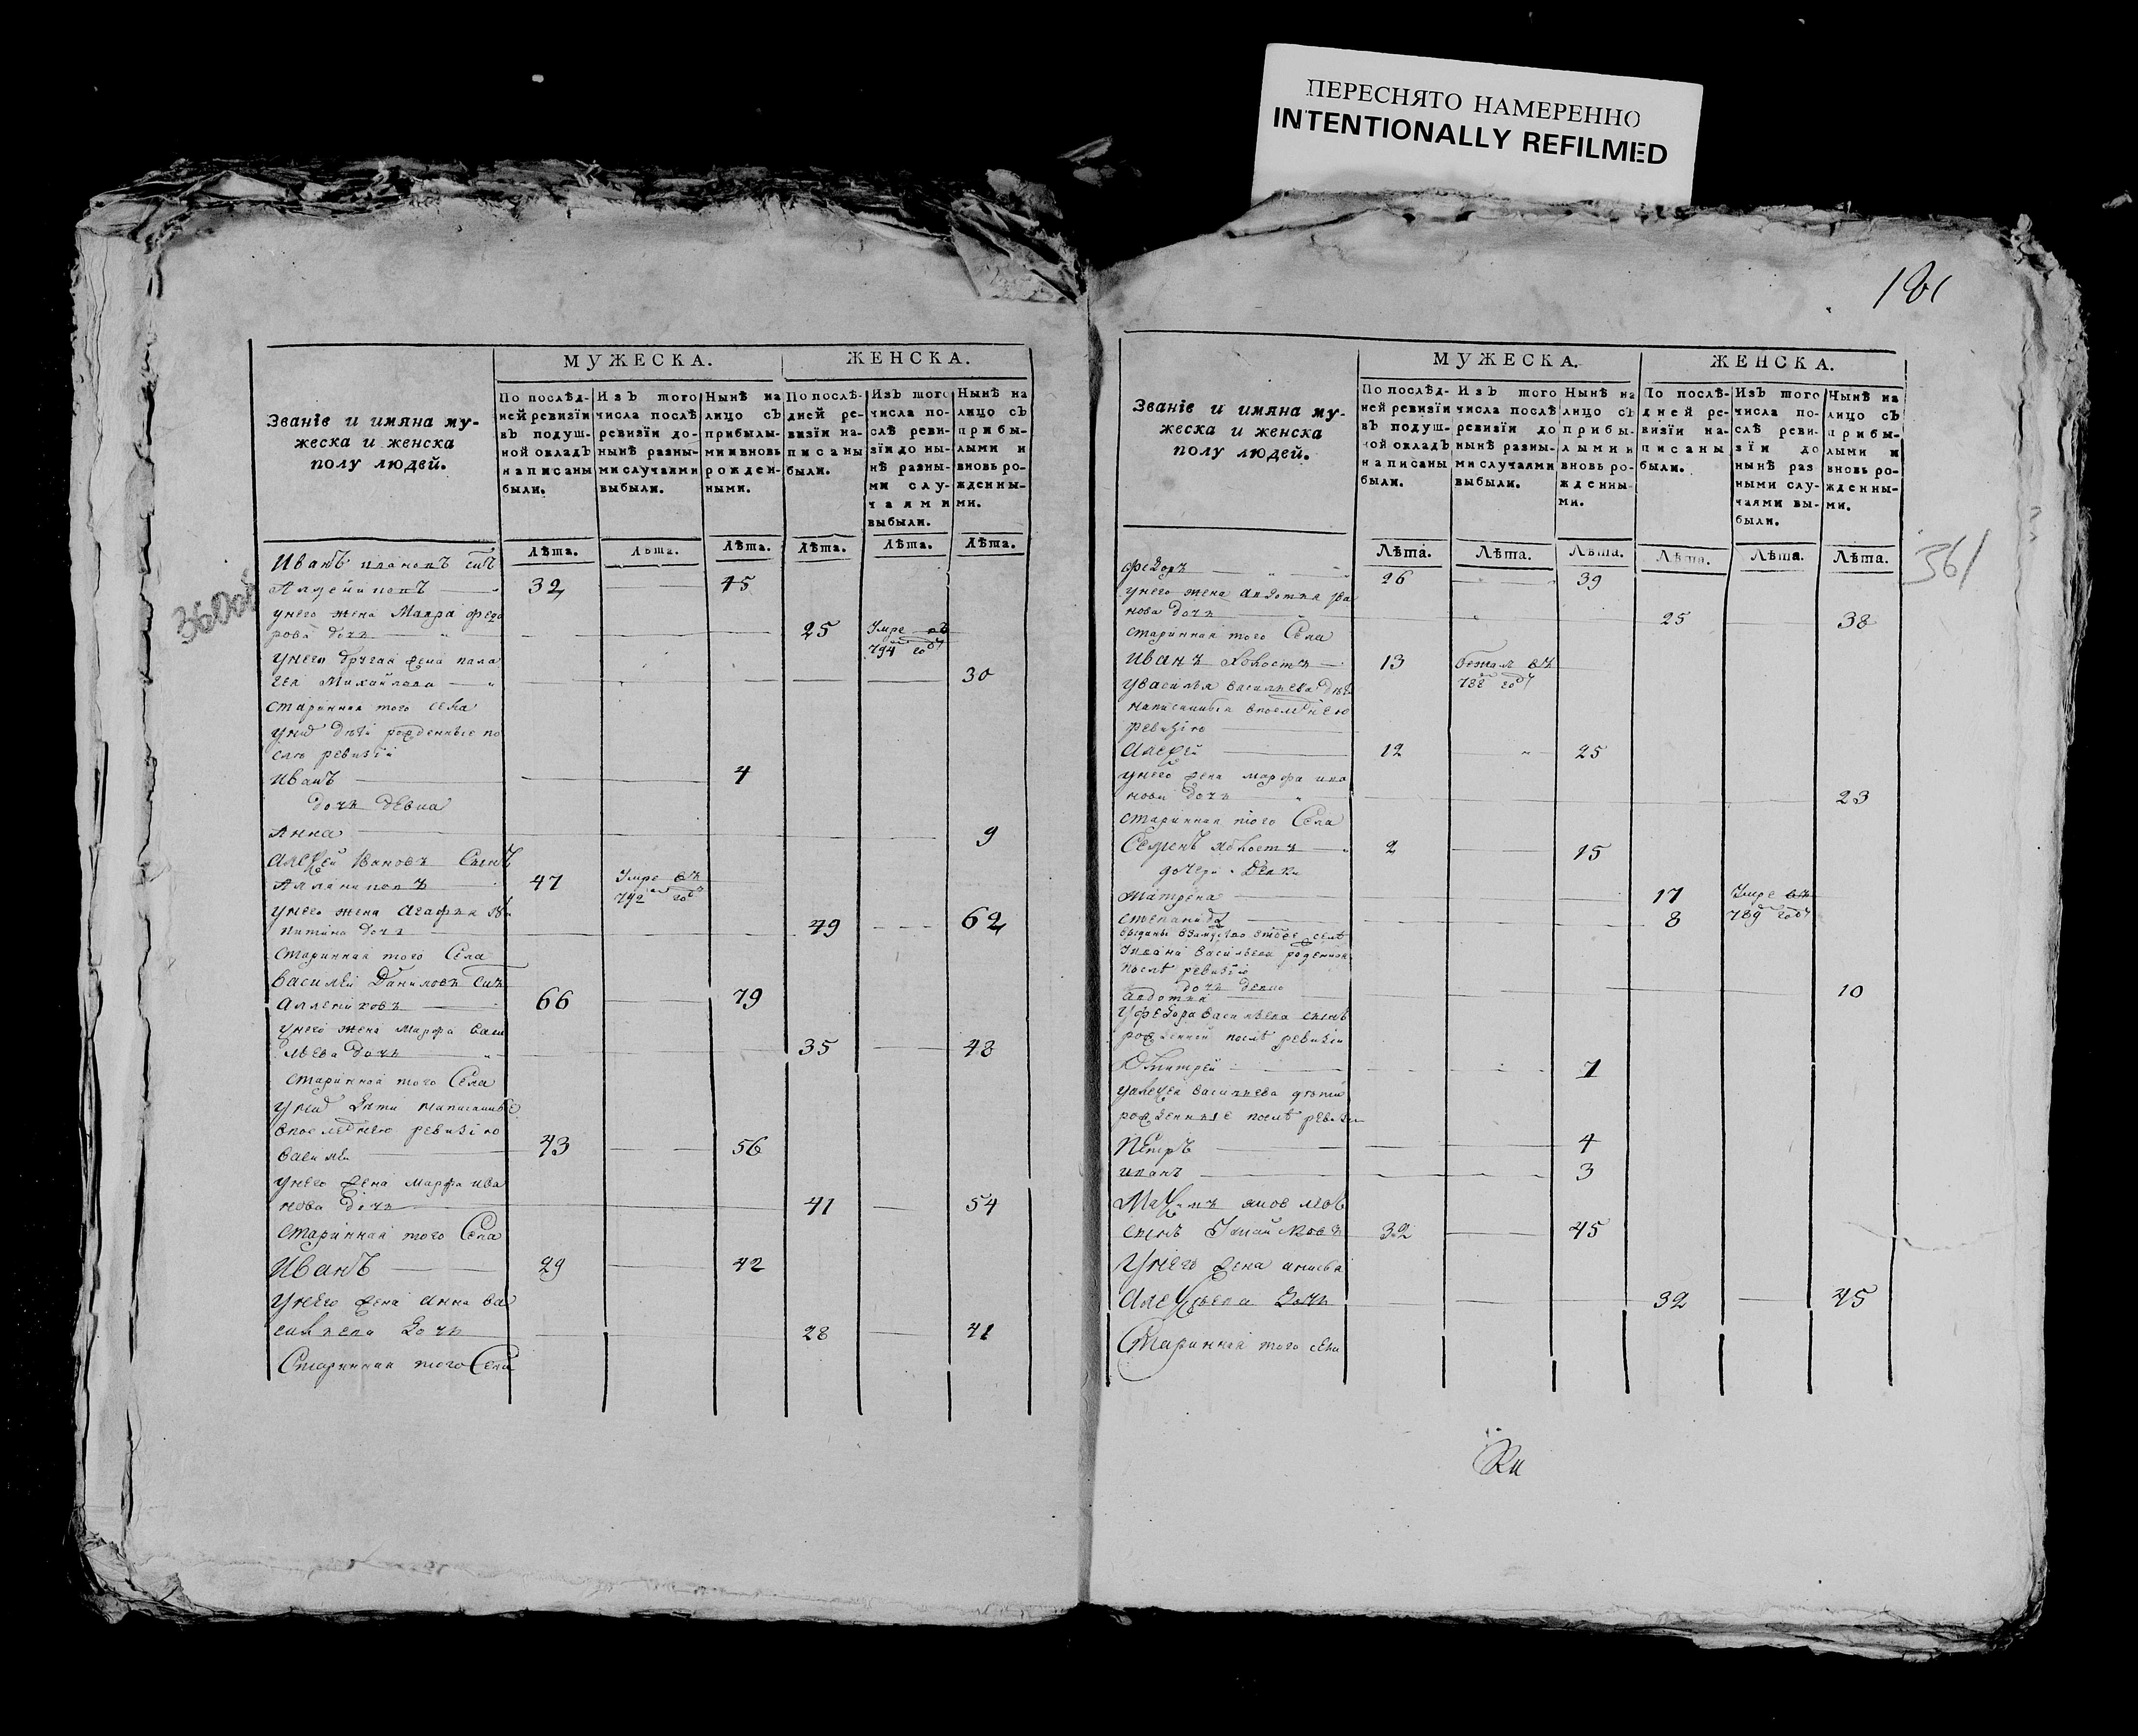 ПЕРЕСНЯТО НАМЕРЕННО
INTENTIONALLY REFILMED
МУЖЕСКА.
ЖЕНСКА.
Званїе и имяна му-
жеска и женска
полу людей.
По послѣд-
ней ревизїи
въ подуш-
ной окладъ
написаны
были.
Изъ того
числа послѣ
ревизїи до-
нынѣ разны-
ми случаями
выбыли.
Нынѣ на
лицо съ
прибылы-
ми и вновь
рожден-
ными.
По послѣ-
дней ре-
визїи на-
писаны
были.
Изъ того
числа по-
слѣ реви-
зїи до ны-
нѣ разны-
ми слу-
чаями
выбыли.
Нынѣ на
лицо съ
прибы-
лыми и
вновь ро-
жденны-
ми.
Лѣта. Лѣта. Лѣта. Лѣта. Лѣта. Лѣта.
Иванъ сынъ
32 45
унего жена Мавра федо
рова дочь 25 Умре въ
794 году
унего другая жена пала
гея Михайлова 30
старинная того села
уних дѣти рожденные по
слѣ ревизїи
Иванъ 4
дочь девка
Анна 9
Алексей Ивановъ Сынъ
47 Умре въ
792 году
унего жена Агафья
дочь 49 62
старинная того Села
василей Даниловъ сынъ
66 79
унего жена Марфа васи
льева дочь 35 48
старинная того Села
уних дѣти написанные
впоследнею ревизїю
василей 43 56
унего жена марфа ива
нова дочь 41 54
старинная того Села
Иванъ 29 42
унего жена анна ва
сильева дочь 28 41
Старинная того Села
181
361
МУЖЕСКА.
ЖЕНСКА.
Званїе и имяна му-
жеска и женска
полу людей.
По послѣд-
ней ревизїи
въ подуш-
ной окладъ
написаны
были.
Изъ того
числа послѣ
ревизїи до
нынѣ разны-
ми случаями
выбыли.
Нынѣ на
лицо съ
прибы-
лыми и
вновь ро-
жденны-
ми.
По послѣ-
дней ре-
визїи на-
писаны
были.
Изъ того
числа по-
слѣ реви-
зїи до
нынѣ раз
ными слу-
чаями вы-
были.
Нынѣ на
лицо съ
прибы-
лыми и
вновь ро-
жденны-
ми.
Лѣта. Лѣта. Лѣта. Лѣта. Лѣта. Лѣта.
федоръ 26 39
унего жена авдотья ива
нова дочь 25 38
старинная того Села
иванъ холостъ 13 бежал въ
788 году
увасилья васильева дети
написанныя впоследнею
ревизїю
алексей 12 25
унего жена марфа ива
нова дочь 23
старинная того Села
Семенъ холостъ 2 15
дочери девки
матрена 17 Умре въ
789 году
степанида 8
Уивана васильева рожденная
послѣ ревизїи
дочь девка
авдотья 10
Уфедора васильева сынъ
рожденной послѣ ревизїи
Дмитрей 7
уалексея васильева дети
рожденные послѣ ревизїи
Петръ 4
иванъ 3
Максимъ
сынъ 32 45
Унего жена анисья
Алексеева дочь 32 45
Старинная того села